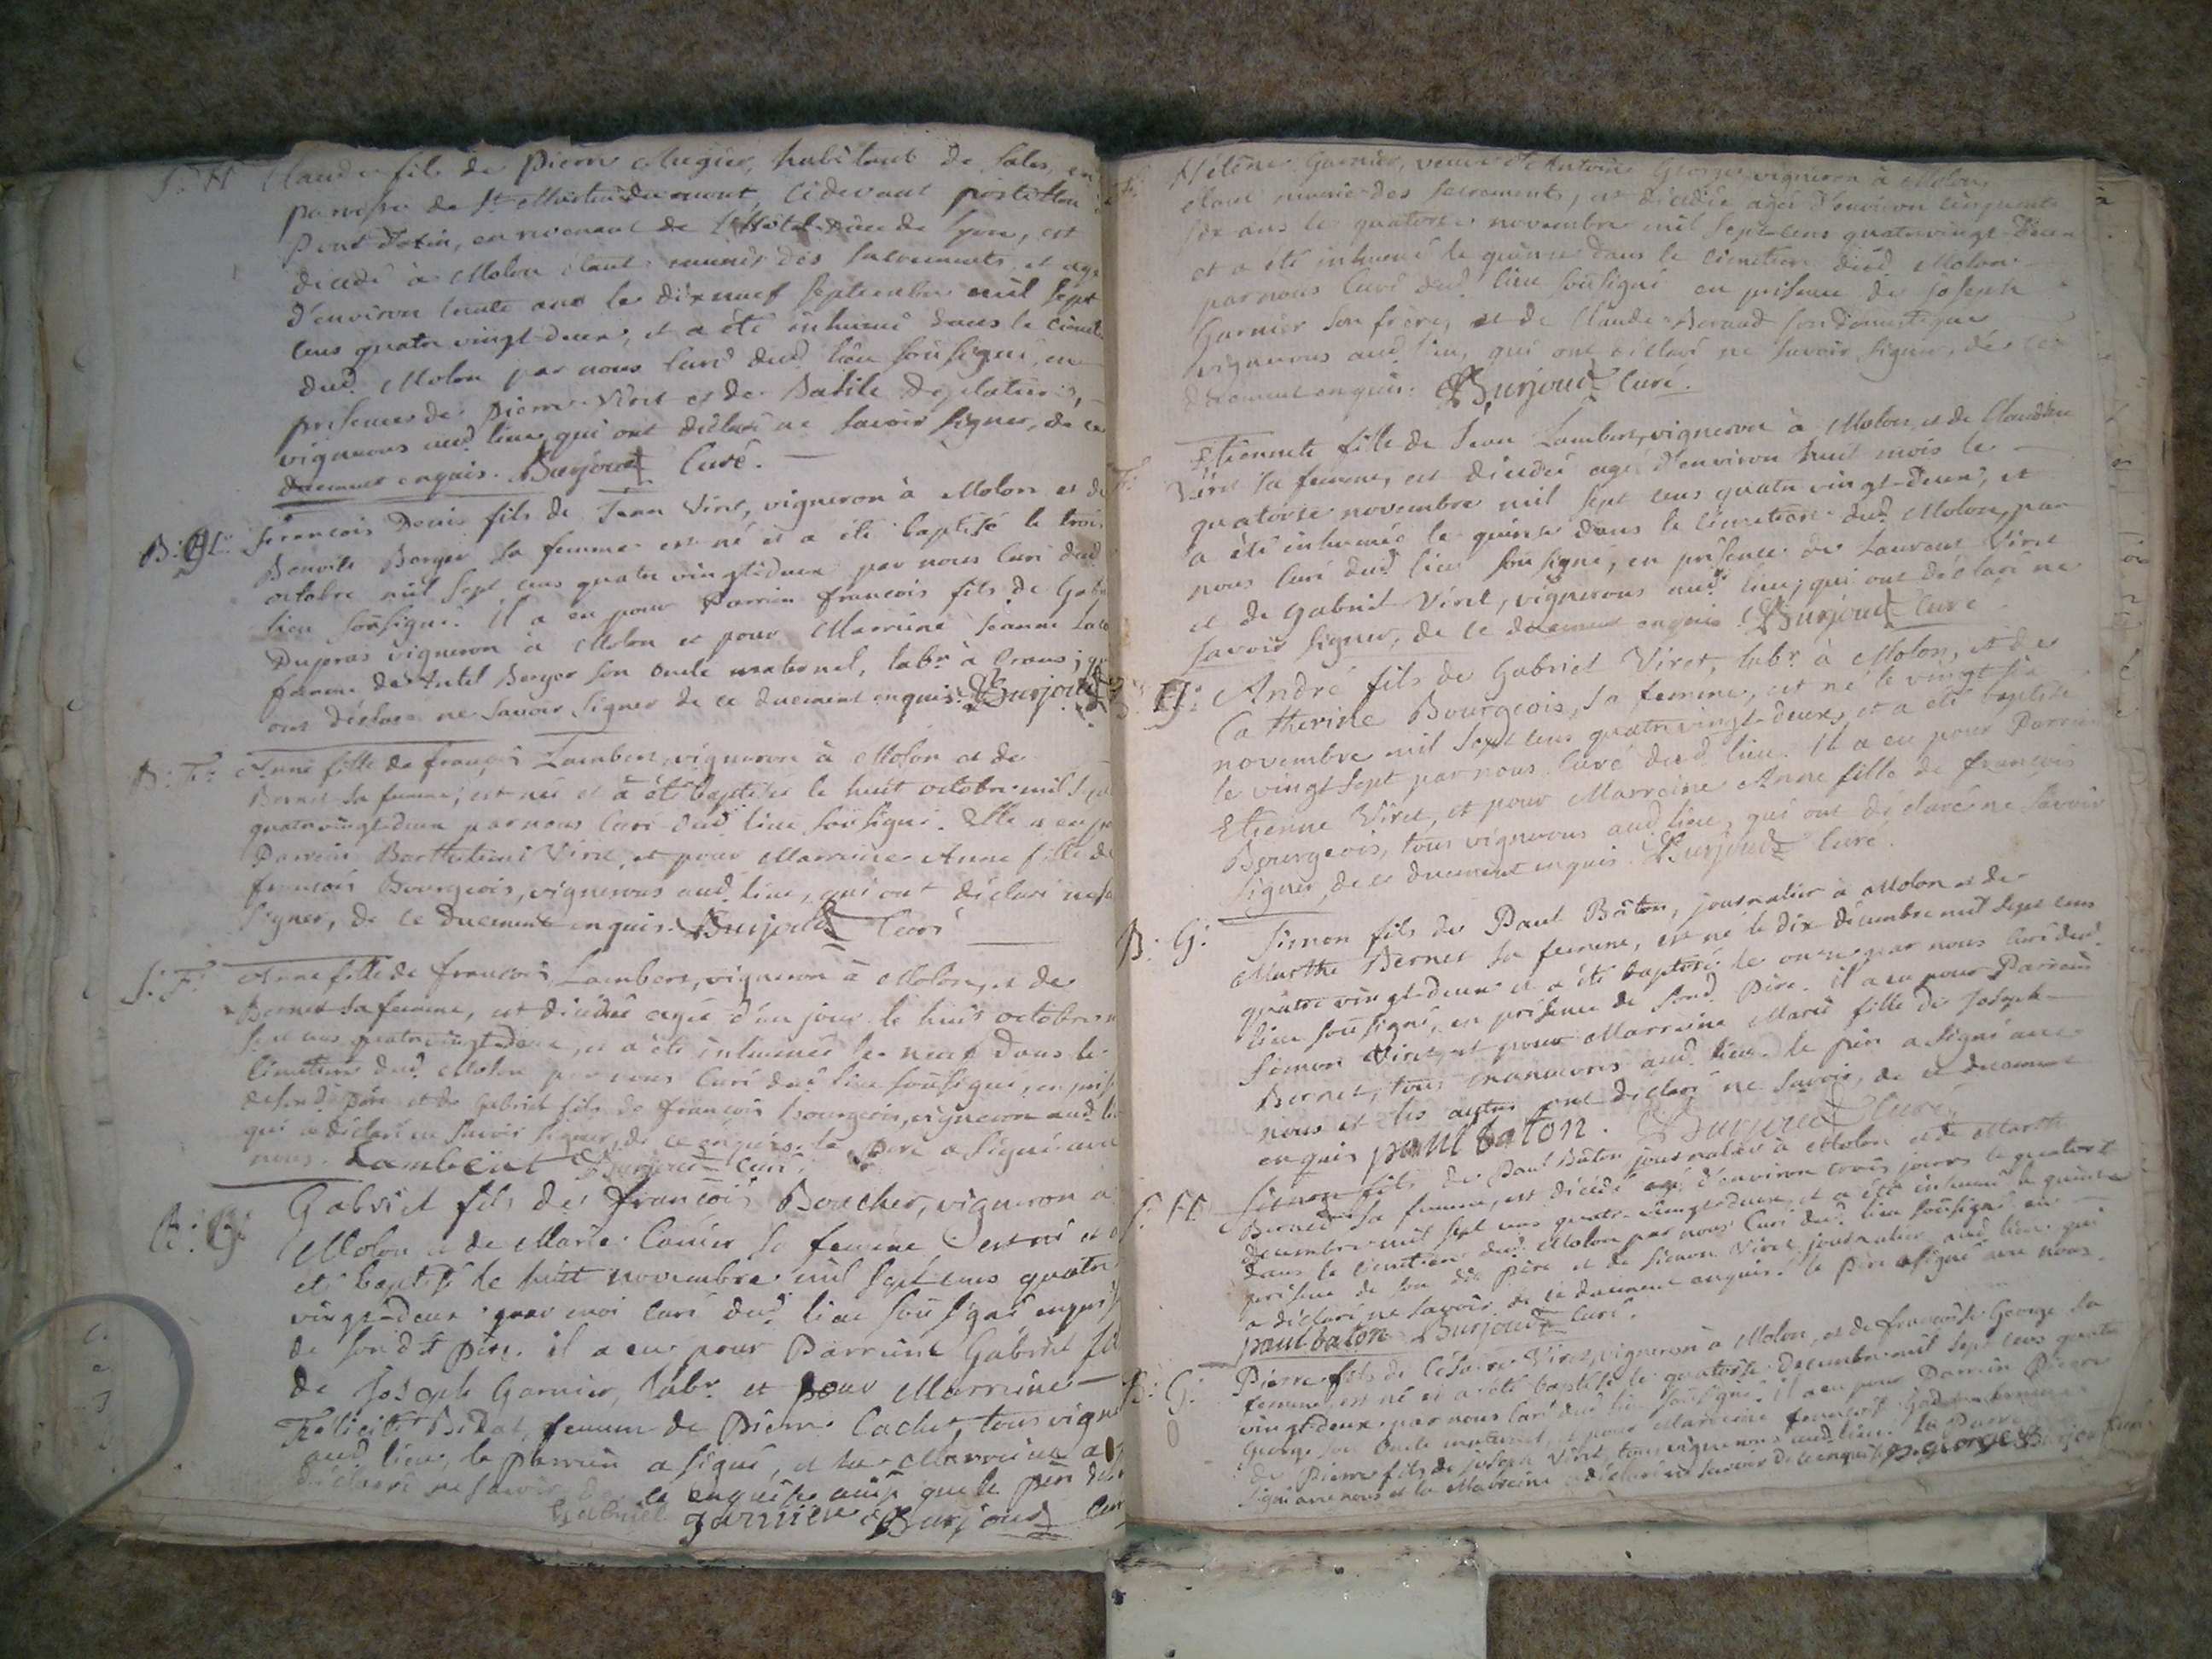 S: H Claude fils de Pierre Augier, habitant de Sales, en
paroisse de St Martin du mont, cidevant postillon
Pont d'ain, en revenant de l'Hôtel-Dieu de Lyon, est
décédé à Molon étant munis des Sacrements, et agé
d'environ trente ans le dixneuf Septembre mil sept
cens quatre vingt-deux, et a été inhumé dans le cimetie
dud. Molon par nous Curé dud. lieu soussigné, en
présence de Pierre Viret et de Basile
vignerons aud. lieu, qui ont déclaré ne savoir signer, de ce
duement enquis. Burjoud Curé.
B: G: François Denis fils de Jean Viret, vigneron à Molon et de
Benoite Berger sa femme est né et a été baptisé le trois
octobre mil sept cens quatre vingt-deux par nous Curé dud.
lieu soussigné. Il a eu pour Parrein françois fils de
Dupras vigneron à Molon et pour Marreine Jeanne
femme de Berger son oncle maternel, labr. à Crans;
ont déclaré ne savoir signer de ce duement enquis. Burjoud
B: F: Anne fille de françois Lambert vigneron à Molon et de
Bernet sa femme, est née et a été baptisée le huit octobre mil sept
quatre vingt-deux par nous Curé dud. lieu soussigné. Elle a eu
Parrein Barthelemi Viret, et pour Marreine Anne fille de
françois Bourgeois, vignerons aud. lieu, qui ont déclaré ne
signer, de ce duement enquis. Burjoud Curé
S: F: Anne fille de françois Lambert, vigneron à Molon, et de
Bernet sa femme, est décédée agée d'un jour le huit octobre
sept cens quatre vingt-deux, et a été inhumée le neuf dans le
cimetiere dud. Molon par nous Curé dud. lieu soussigné, en
de sond. père et de Gabriel fils de françois Bourgeois, vigneron aud.
qui a déclaré ne savoir signer, de ce enquis. le père a signé avec
nous. Lambert Burjoud Curé.
B: G: Gabriel fils de françois Boucher, vigneron a
Molon et de Marie sa femme est né et
été baptisé le huit novembre mil sept cens quatre
vingt-deux par moi Curé dud. lieu soussigné
de sond. père. il a eu pour Parrein Gabriel fils
de Joseph Garnier, labr. et pour Marreine
Félicité Bidat, femme de Pierre Cachet, tous
aud. lieu, le Parrein a signé, et la Marreine a
déclaré ne savoir de ce enquise ainsi que le père
Gabriel garnier Burjoud
Hélène Garnier, veuve d'Antoine George vigneron à Molon,
étant munie des sacrements, est décédée agée d'environ cinquante
six ans le quatorze novembre mil sept cens quatre vingt-deux
et a été inhumé le quinze dans le cimetiere dud. Molon
par nous Curé dud. lieu soussigné en présence de Joseph
Garnier son frère, et de Claude Beraud son domestique
vignerons aud. lieu, qui ont déclaré ne savoir signer, de ce
duement enquis. Burjoud Curé.
F: Etiennete fille de Jean Lambert, vigneron à Molon, et de Claudine
Viret sa femme, est décédée agée d'environ huit mois le
quatorze novembre mil sept cens quatre vingt-deux, et
a été inhumée le quinze dans le cimetiere dud. Molon, par
nous Curé dud. lieu soussigné, en présence de Laurent Viret
et de Gabriel Viret, vignerons aud. lieu, qui ont déclaré ne
savoir signer, de ce duement enquis. Burjoud Curé.
B: G: André fils de Gabriel Viret, labr. à Molon, et de
Catherine Bourgeois, sa femme, est né le vingt-six
novembre mil sept cens quatre vingt-deux, et a été baptisé
le vingt sept par nous Curé dud. lieu. Il a eu pour Parrein
Etienne Viret, et pour Marreine Anne fille de françois
Bourgeois, tous vignerons aud. lieu, qui ont déclaré ne savoir
signer, de ce duement enquis. Burjoud Curé.
B: G: Simon fils de Paul Bâton, journalier à Molon et de
Marthe Bernet sa femme, est né le dix décembre mil sept cens
quatre vingt-deux et a été baptisé le onze par nous Curé dud.
lieu soussigné, en présence de sond. père. Il a eu pour Parrein
Simon Viret, et pour Marreine Marie fille de Joseph
Bernet, tous manœuvres aud. lieu. le père a signé avec
nous et les autres ont déclaré ne savoir, de ce duement
enquis paul baton. Burjoud Curé.
S: H: Simon fils de Paul Bâton journalier à Molon et de Marthe
Bernet sa femme, est décédé agé d'environ trois jours le quatorze
décembre mil sept cens quatre-vingt-deux et a été inhumé le quinze
dans le cimetiere dud. Molon par nous Curé dud. lieu soussigné en
présence de son dit père et de Simon Viret journalier aud. lieu qui
a déclaré ne savoir, de ce duement enquis. le père a signé avec nous.
paul baton Burjoud Curé.
B: G: Pierre fils de Césaire Viret, vigneron à Molon, et de françoise George sa
femme, est né et a été baptisé le quatorze decembre mil sept cens quatre
vingt-deux par nous Curé dud. lieu soussigné. Il a eu pour Parrein Pierre
George son oncle maternel, et pour Marreine françoise femme
de Pierre fils de Joseph Viret, tous vignerons aud. lieu. Le Parrein
signé avec nous et la Marreine a déclaré ne savoir de ce enquise p. george Burjoud Curé